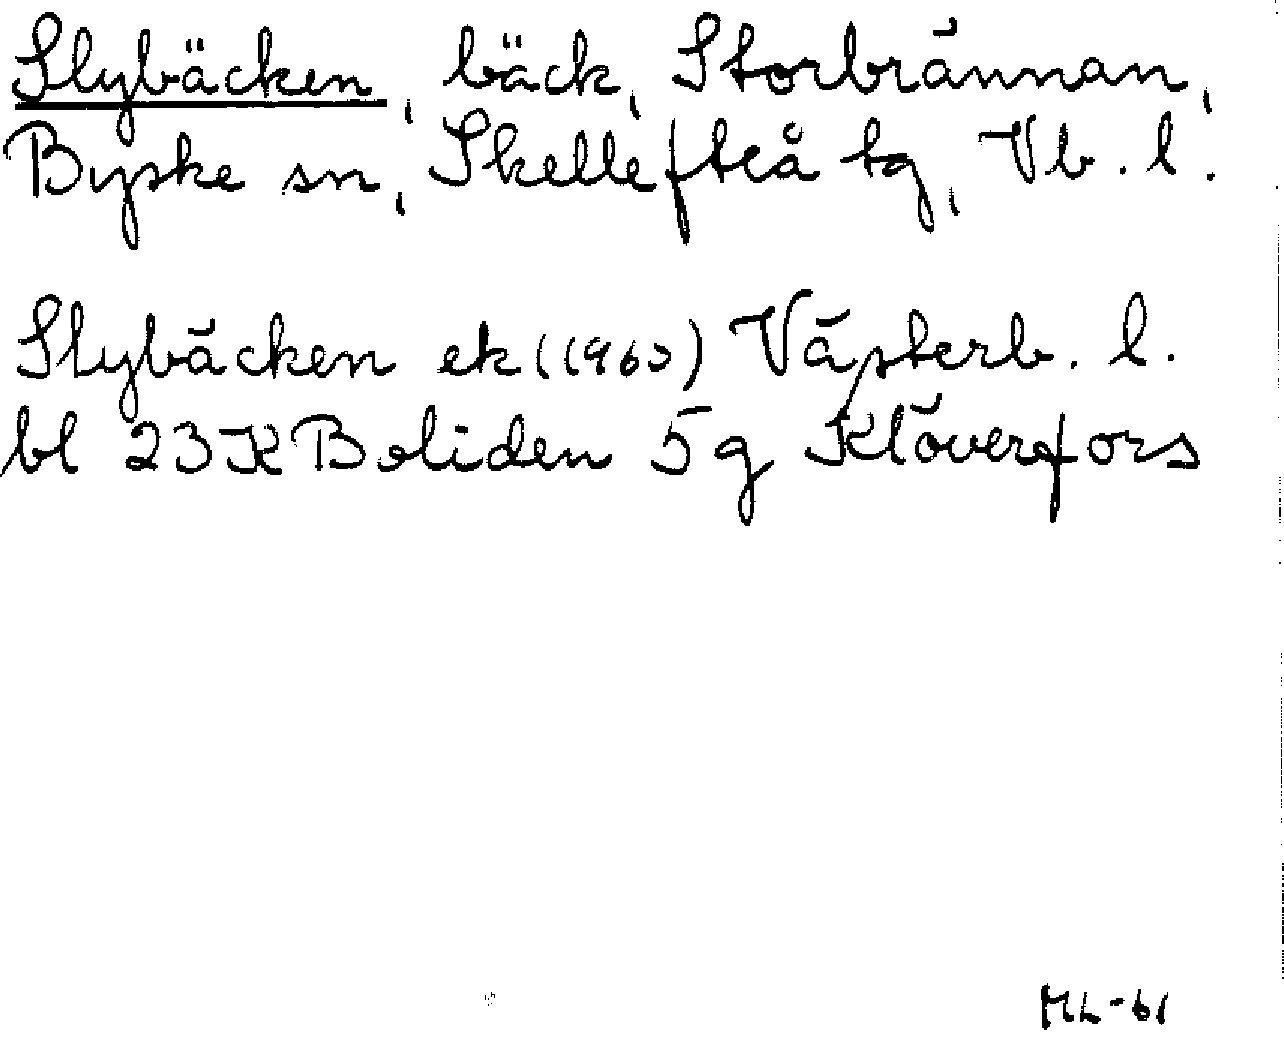 Slybäcken, bäck, Storbrännan,
Byske sn, Skellefteå tg, Vb. l.
Slybäcken ek (1960) Västerb. l.
bl 23K Boliden 5g Klöverfors
ML-61